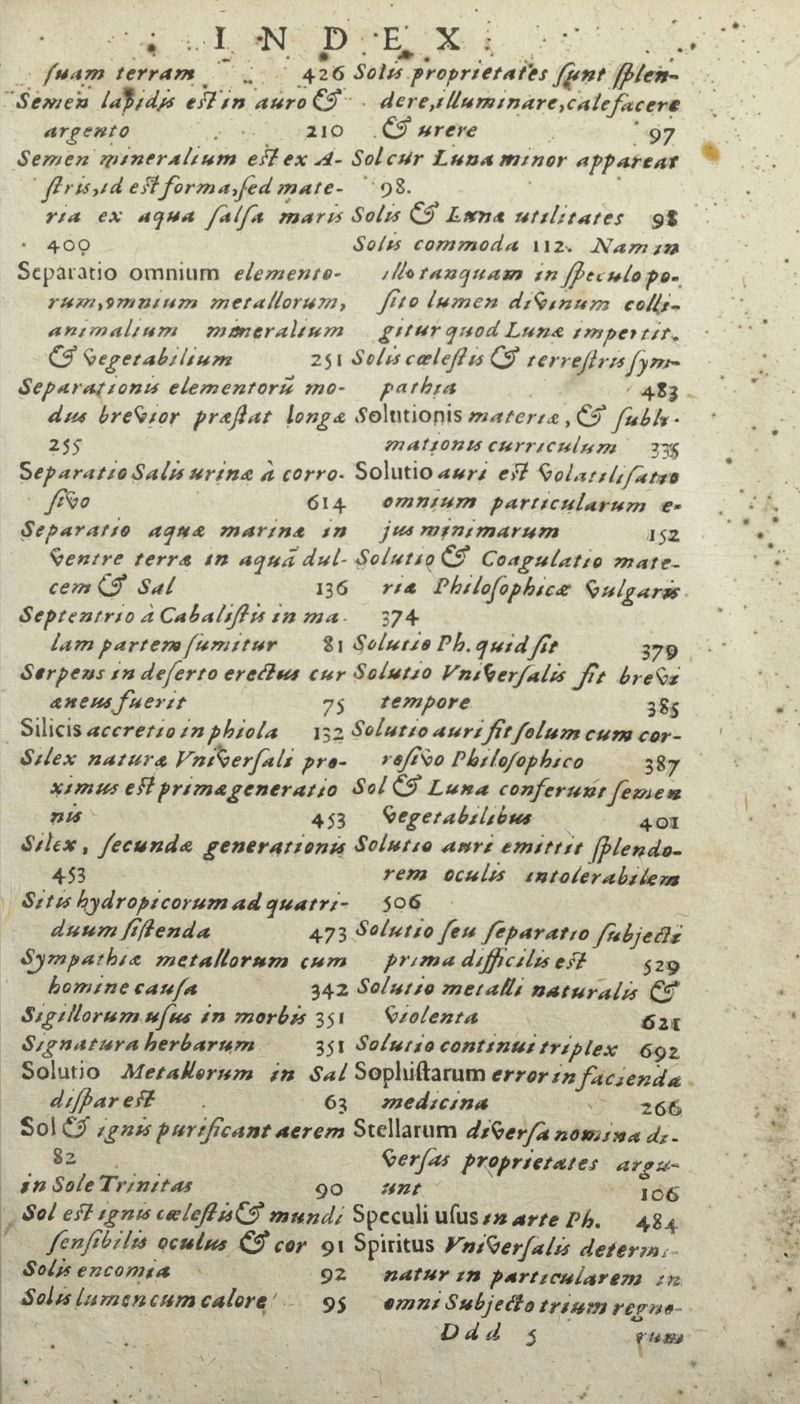 INDEX
suam terram 426
Semen lapidis est in auro &
argento 210
Semen mineralium est ex A-
stris, id est forma, sed mate-
ria ex aqua salsa maris
400
Separatio omnium elemento-
rum, omnium metallorum,
animalium mineralium
& vegetabilium 251
Separationis elementorũ mo-
dus brevior præstat longæ
255
Separatio Salis urinæ à corro-
sivo 614
Separatio aquæ marinæ in
ventre terræ in aquã dul-
cem & Sal 136
Septentrio à Cabalistis in ma-
lam partem sumitur 81
Serpens in deserto erectus cur
æneus fuerit 75
Silicis accretio in phiola 132
Silex naturæ Vniversali pro-
ximus est primæ generatio
nis 453
Silex, secundæ generationis
453
Sitis hydropicorum ad quatri-
duum sistenda 473
Sympathiæ metallorum cum
homine causa 342
Sigillorum usus in morbis 351
Signatura herbarum 351
Solutio Metallorum in Sal
dispar est 63
Sol & ignis purificant aerem
82
in Sole Trinitas 90
Sol est ignis cœlestis & mundi
sensibilis oculus & cor 91
Solis encomia 92
Solis lumen cum calore 95
Solis proprietates sunt splen-
dere, illuminare, calefacere
& urere 97
Sol cur Luna minor appareat
98.
Solis & Lunæ utilitates 98
Solis commoda 112. Nam in
illo tanquam in speculo po-
sito lumen divinum colli-
gitur quod Lunæ impertit.
Solis cœlestis & terrestris sym-
pathia 483
Solutionis materiæ, & subli-
mationis curriculum 335
Solutio auri est volatilisatio
omnium particularum e-
jus minimarum 152
Solutio & Coagulatio mate-
riæ Philosophicæ vulgaris
374
Solutio Ph. quid sit 379
Solutio Vniversalis fit brevi
tempore 385
Solutio auri fit solum cum cor-
rosivo Philosophico 387
Sol & Luna conferunt semen
vegetabilibus 401
Solutio auri emittit splendo-
rem oculis intolerabilem
506
Solutio seu separatio subjecti
prima difficilis est 529
Solutio metalli naturalis &
violenta 621
Solutio continui triplex 692
Sophistarum error in facienda
medicina 266
Stellarum diversa nomina di-
versas proprietates argu-
unt 106
Speculi usus in arte Ph. 484
Spiritus Vniversalis determi-
natur in particularem in
omni Subjecto trium regno-
Ddd 5 rum